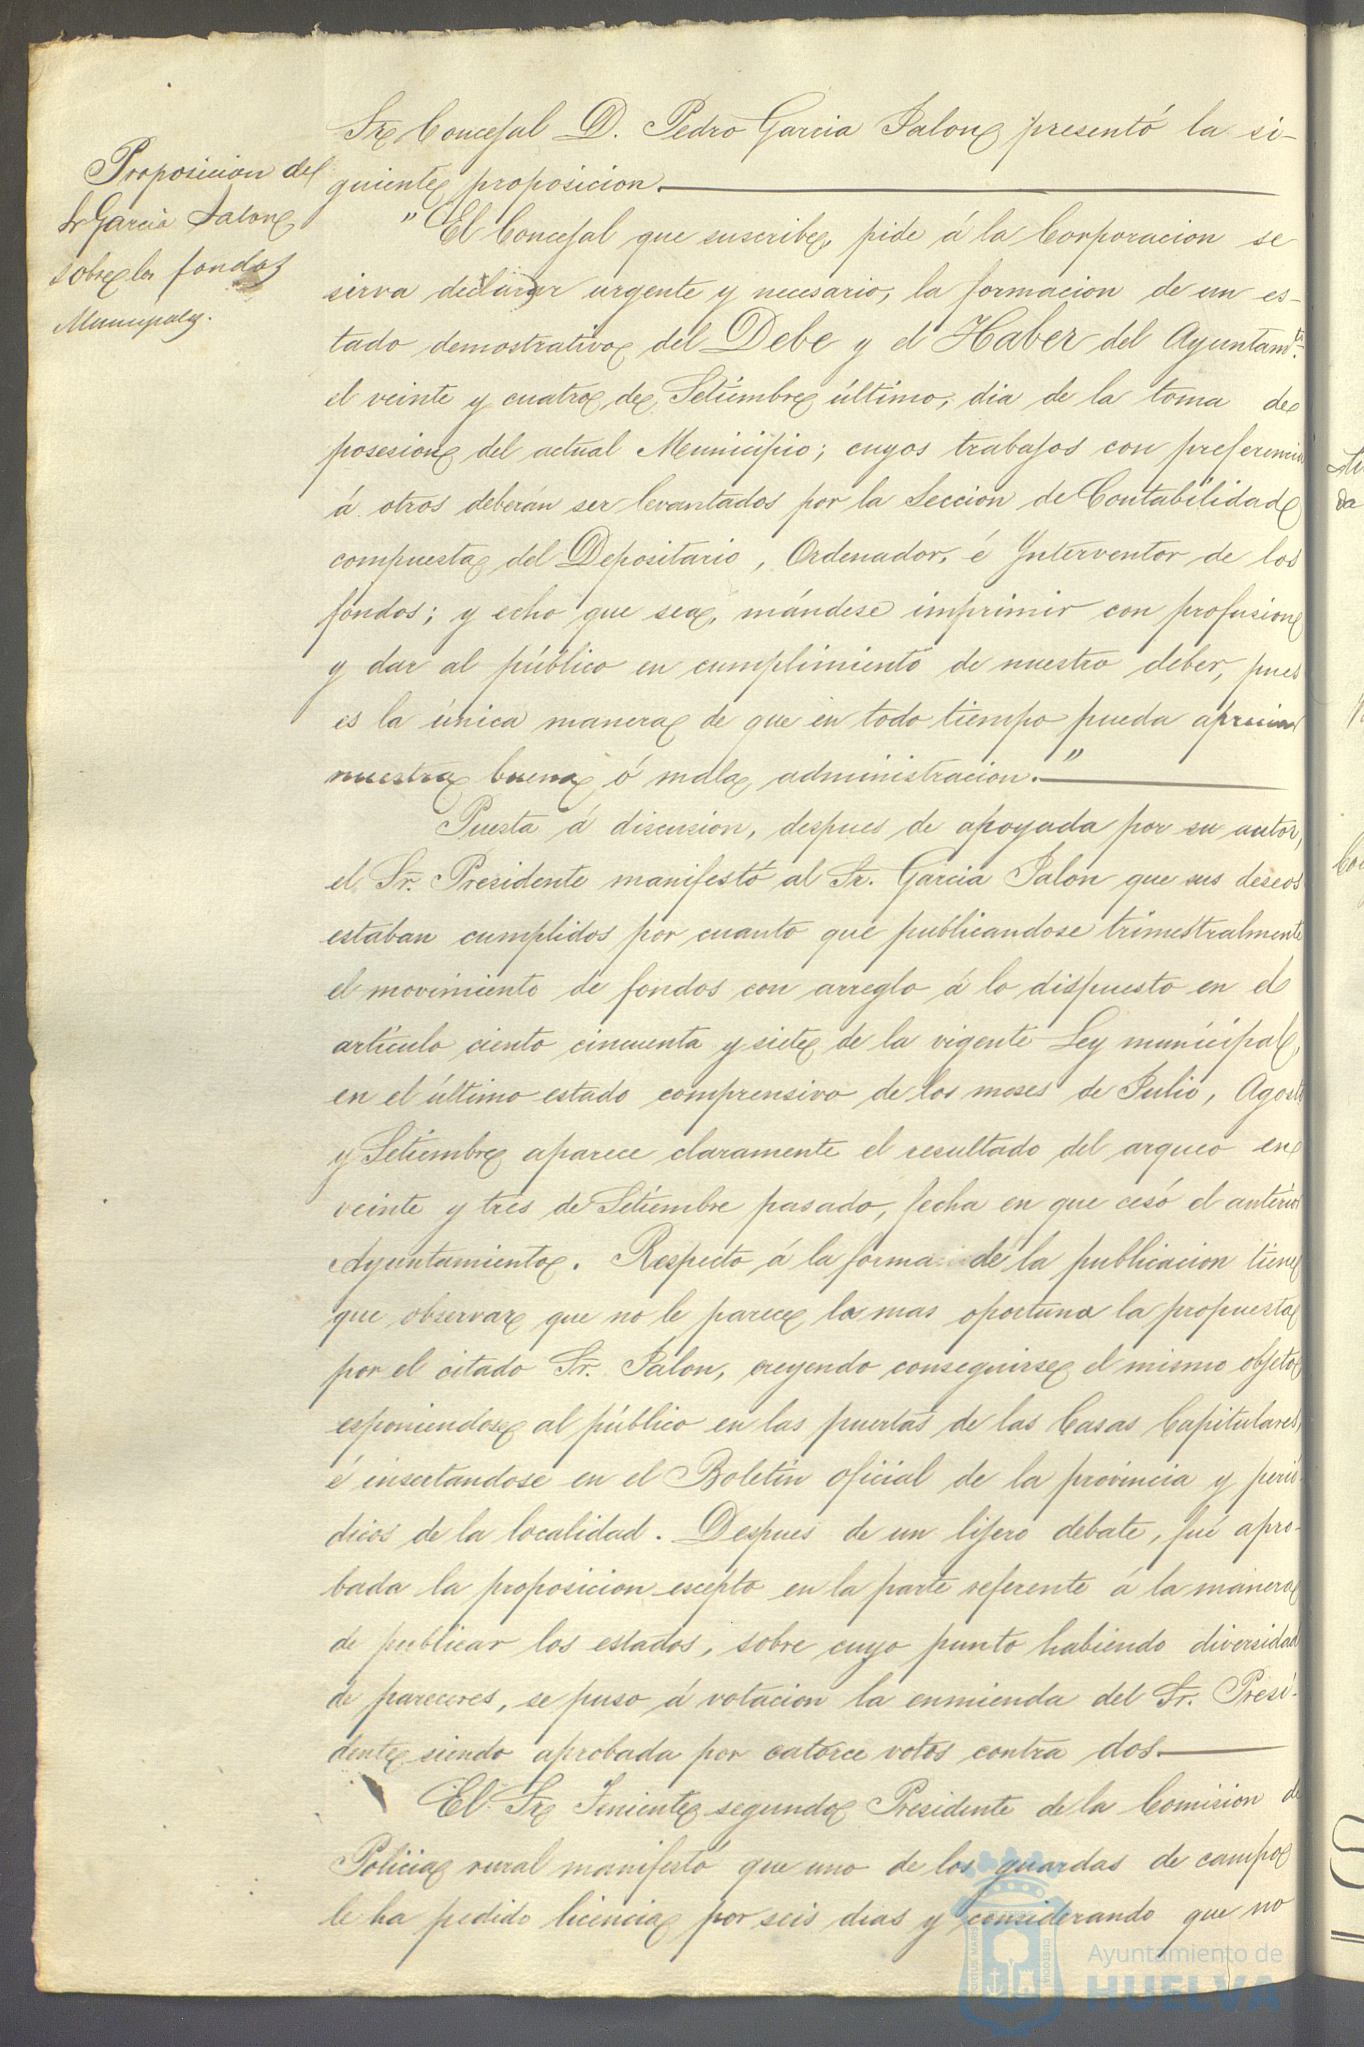 Proposicion del
Sr Garcia Jalon
sobre los fondos
Municipales.
Sr Concejal D. Pedro Garcia Jalon presentó la si-
guiente proposicion.
"El Concejal que suscribe, pide á la Corporacion se
sirva declarar urgente y necesario, la formacion de un es-
tado demostrativo del Debe y el Haber del Ayuntamto.
el veinte y cuatro de Setiembre último, dia de la toma de
posesion del actual Municipio; cuyos trabajos con preferencia
á otros deberán ser levantados por la Seccion de Contabilidad
compuesta del Depositario, Ordenador, é Ynterventor de los
fondos; y echo que sea, mándese imprimir con profusion
y dar al público en cumplimiento de nuestro deber, pues
es la única manera de que en todo tiempo pueda apreciar
nuestra buena ó mala administracion."
Puesta á discusion, despues de apoyada por su autor,
el Sr. Presidente manifestó al Sr. Garcia Jalon que sus deseos
estaban cumplidos por cuanto que publicandose trimestralmente
el movimiento de fondos con arreglo á lo dispuesto en el
artículo ciento cincuenta y siete de la vigente Ley municipal,
en el último estado comprensivo de los meses de Julio, Agosto
y Setiembre aparece claramente el resultado del arqueo en
veinte y tres de Setiembre pasado, fecha en que cesó el anterior
Ayuntamiento. Respecto á la forma de la publicacion tiene
que observar que no le parece la mas oportuna la propuesta
por el citado Sr. Jalon, creyendo conseguirse el mismo objeto
esponiendose al público en las puertas de las Casas Capitulares,
é insertandose en el Boletin oficial de la provincia y perió-
dicos de la localidad. Despues de un lijero debate, fué apro-
bada la proposicion escepto en la parte referente á la manera
de publicar los estados, sobre cuyo punto habiendo diversidad
de pareceres, se puso á votacion la enmienda del Sr. Presi-
dente siendo aprobada por catorce votos contra dos.
El Sr Teniente segundo Presidente de la Comision de
Policia rural manifestó que uno de los guardas de campo
le ha pedido licencia por seis dias y considerando que no
Ayuntamiento de
HUELVA